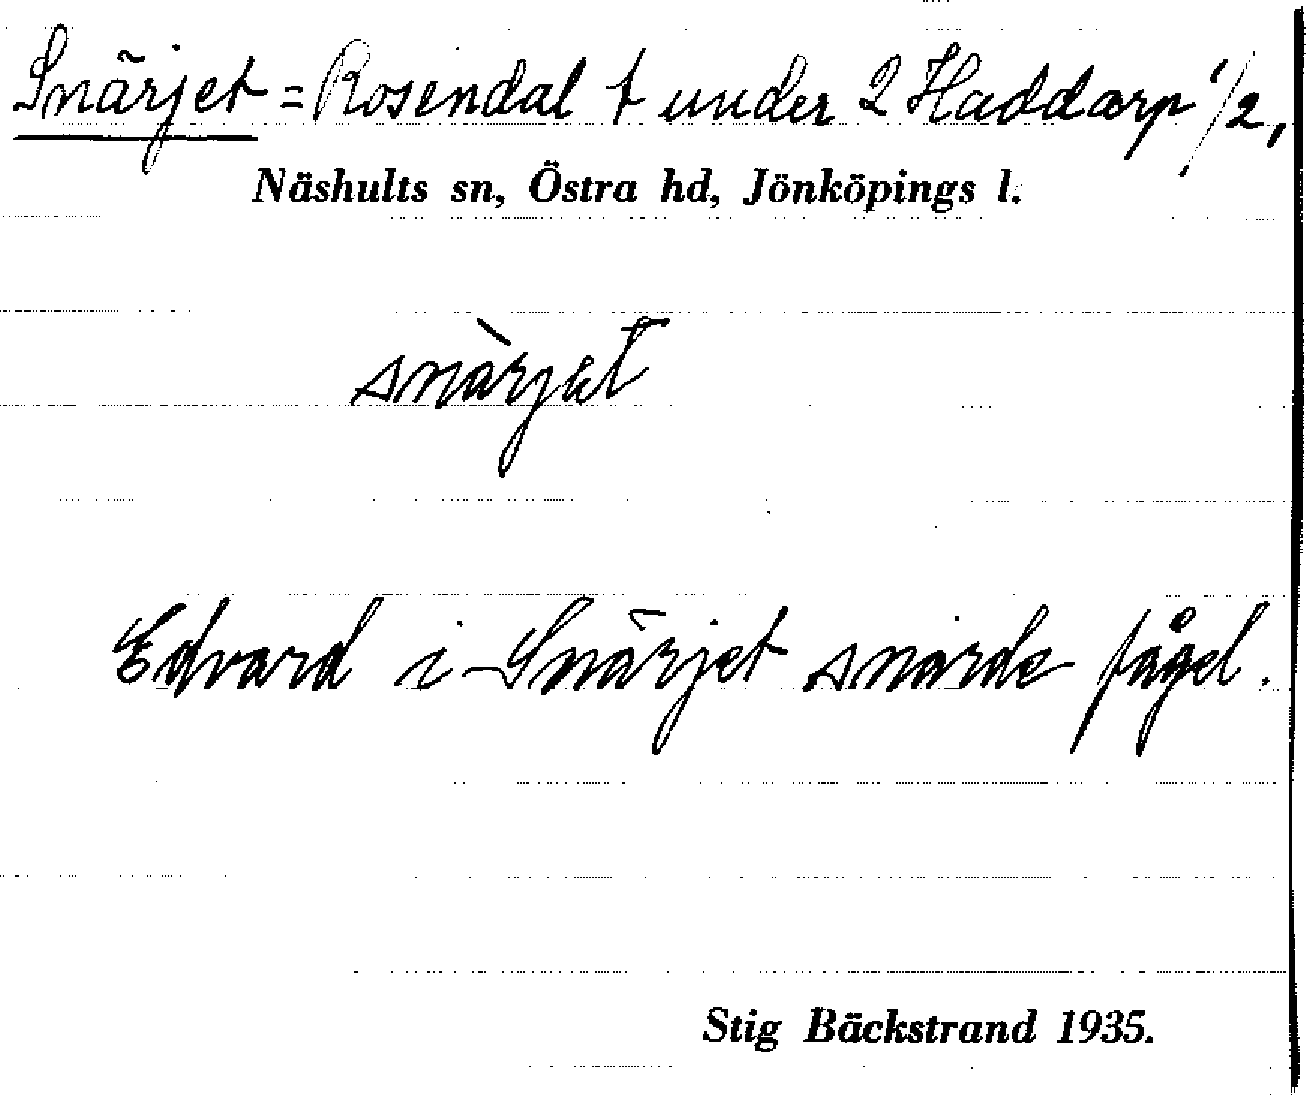 Snärjet = Rosendal t under 2 Haddarp 1/2,
Näshults sn, Östra hd, Jönköpings l.
snàrjet
Edvard i Snärjet snarde fågel.
Stig Bäckstrand 1935.